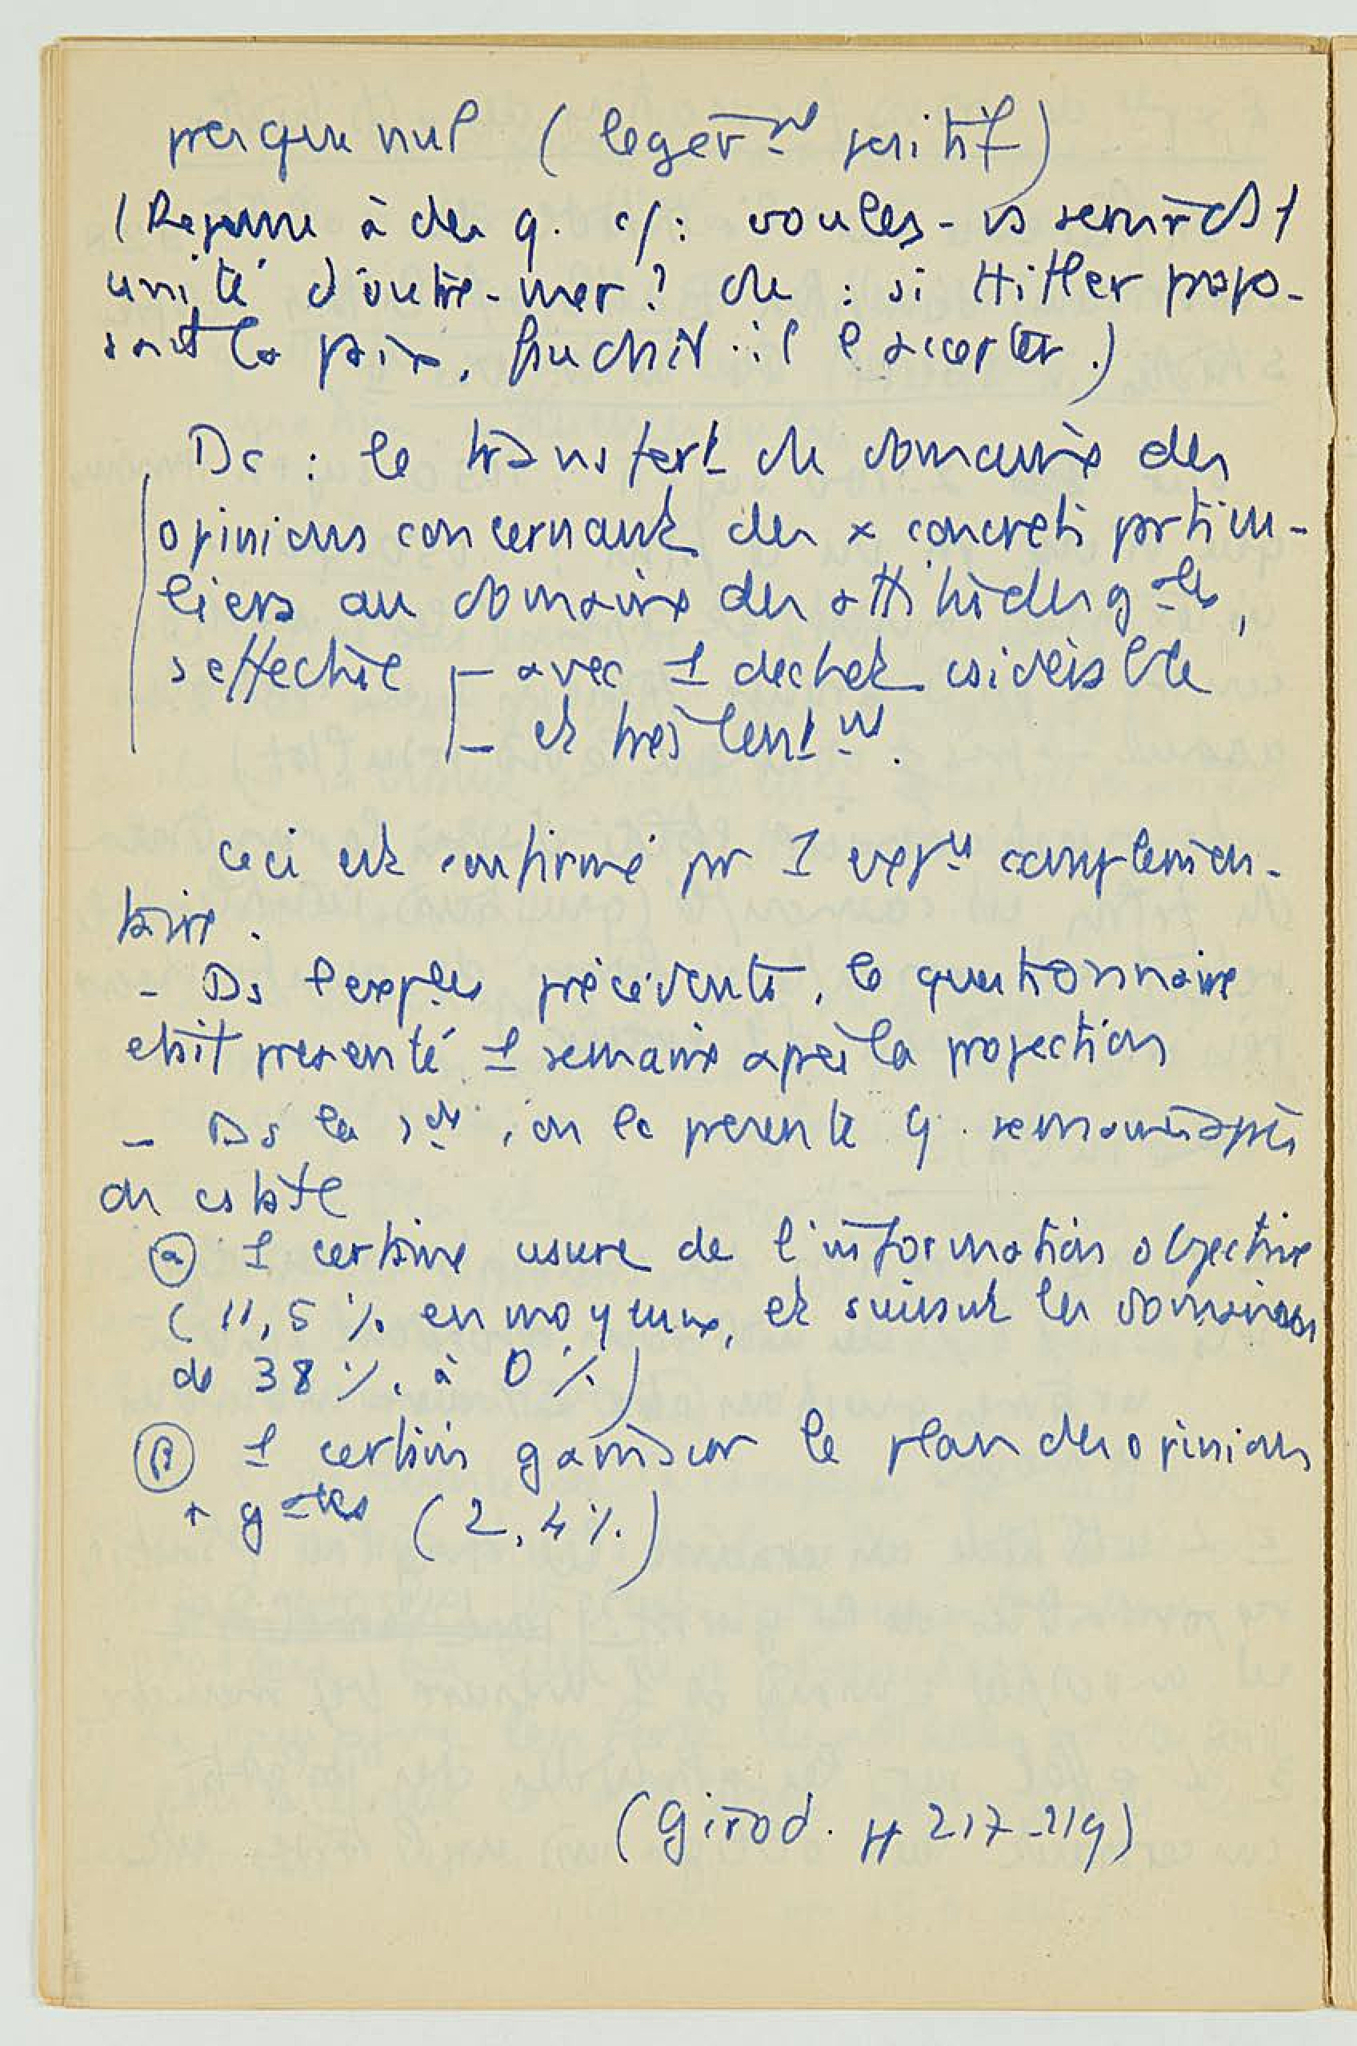 presque nul (légèr-nt positif)
(Réponse à des q. c/: voulez-vs servir ds 1
unité d'outre-mer? de : si Hitler propo-
sait la paix, faudrait-il l'accepter.)
Dc : le transfert du domaine des
opinions concernant des x concrets particu-
liers au domaine des attitudes g-ales,
s'effectue - avec 1 déchet csidérable
- et très lent-nt.
ceci est confirmé pr 1 exp. complémen-
taire.
- Ds l'exp. précédente, le questionnaire
était présenté 1 semaine après la projection
- Ds la 2de, on le présente 9 semaines après
on cstate
(a) 1 certaine usure de l'information objective
(11,5 % en moyenne, et suivant les domaines
de 38 % à 0 %)
(β) 1 certain gain sur le plan des opinions
+ g-ales (2,4 %)
(Girod. pp 217-219)